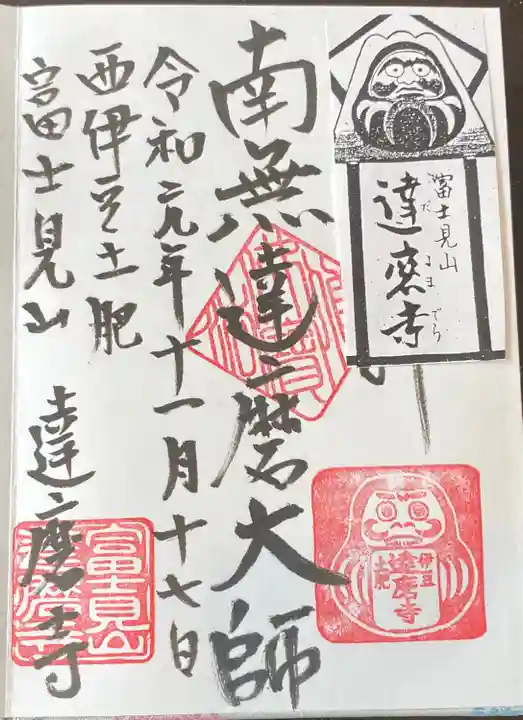 富士見山
達磨寺
だ る ま で ら
南無達磨大師
令和元年十一月十七日
西伊豆土肥
富士見山
達磨寺
伊豆
土肥
達磨寺